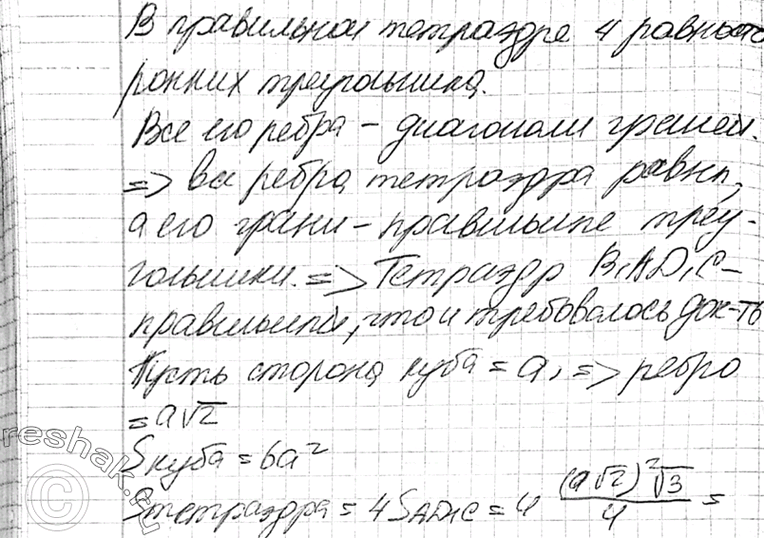 В правильном тетраэдре 4 равносто
ронних треугольника.
Все его ребра - диагонали граней.
=> все ребра тетраэдра равны,
а его грани - правильные треу-
гольники. => Тетраэдр B₁AD₁C -
правильный, что и требовалось док-ть
Пусть сторона куба = a, => ребро
= a√2
Sкуба = 6a²
Sтетраэдра = 4S_AD₁C = 4 (a√2)²√3/4 =
reshak.ru